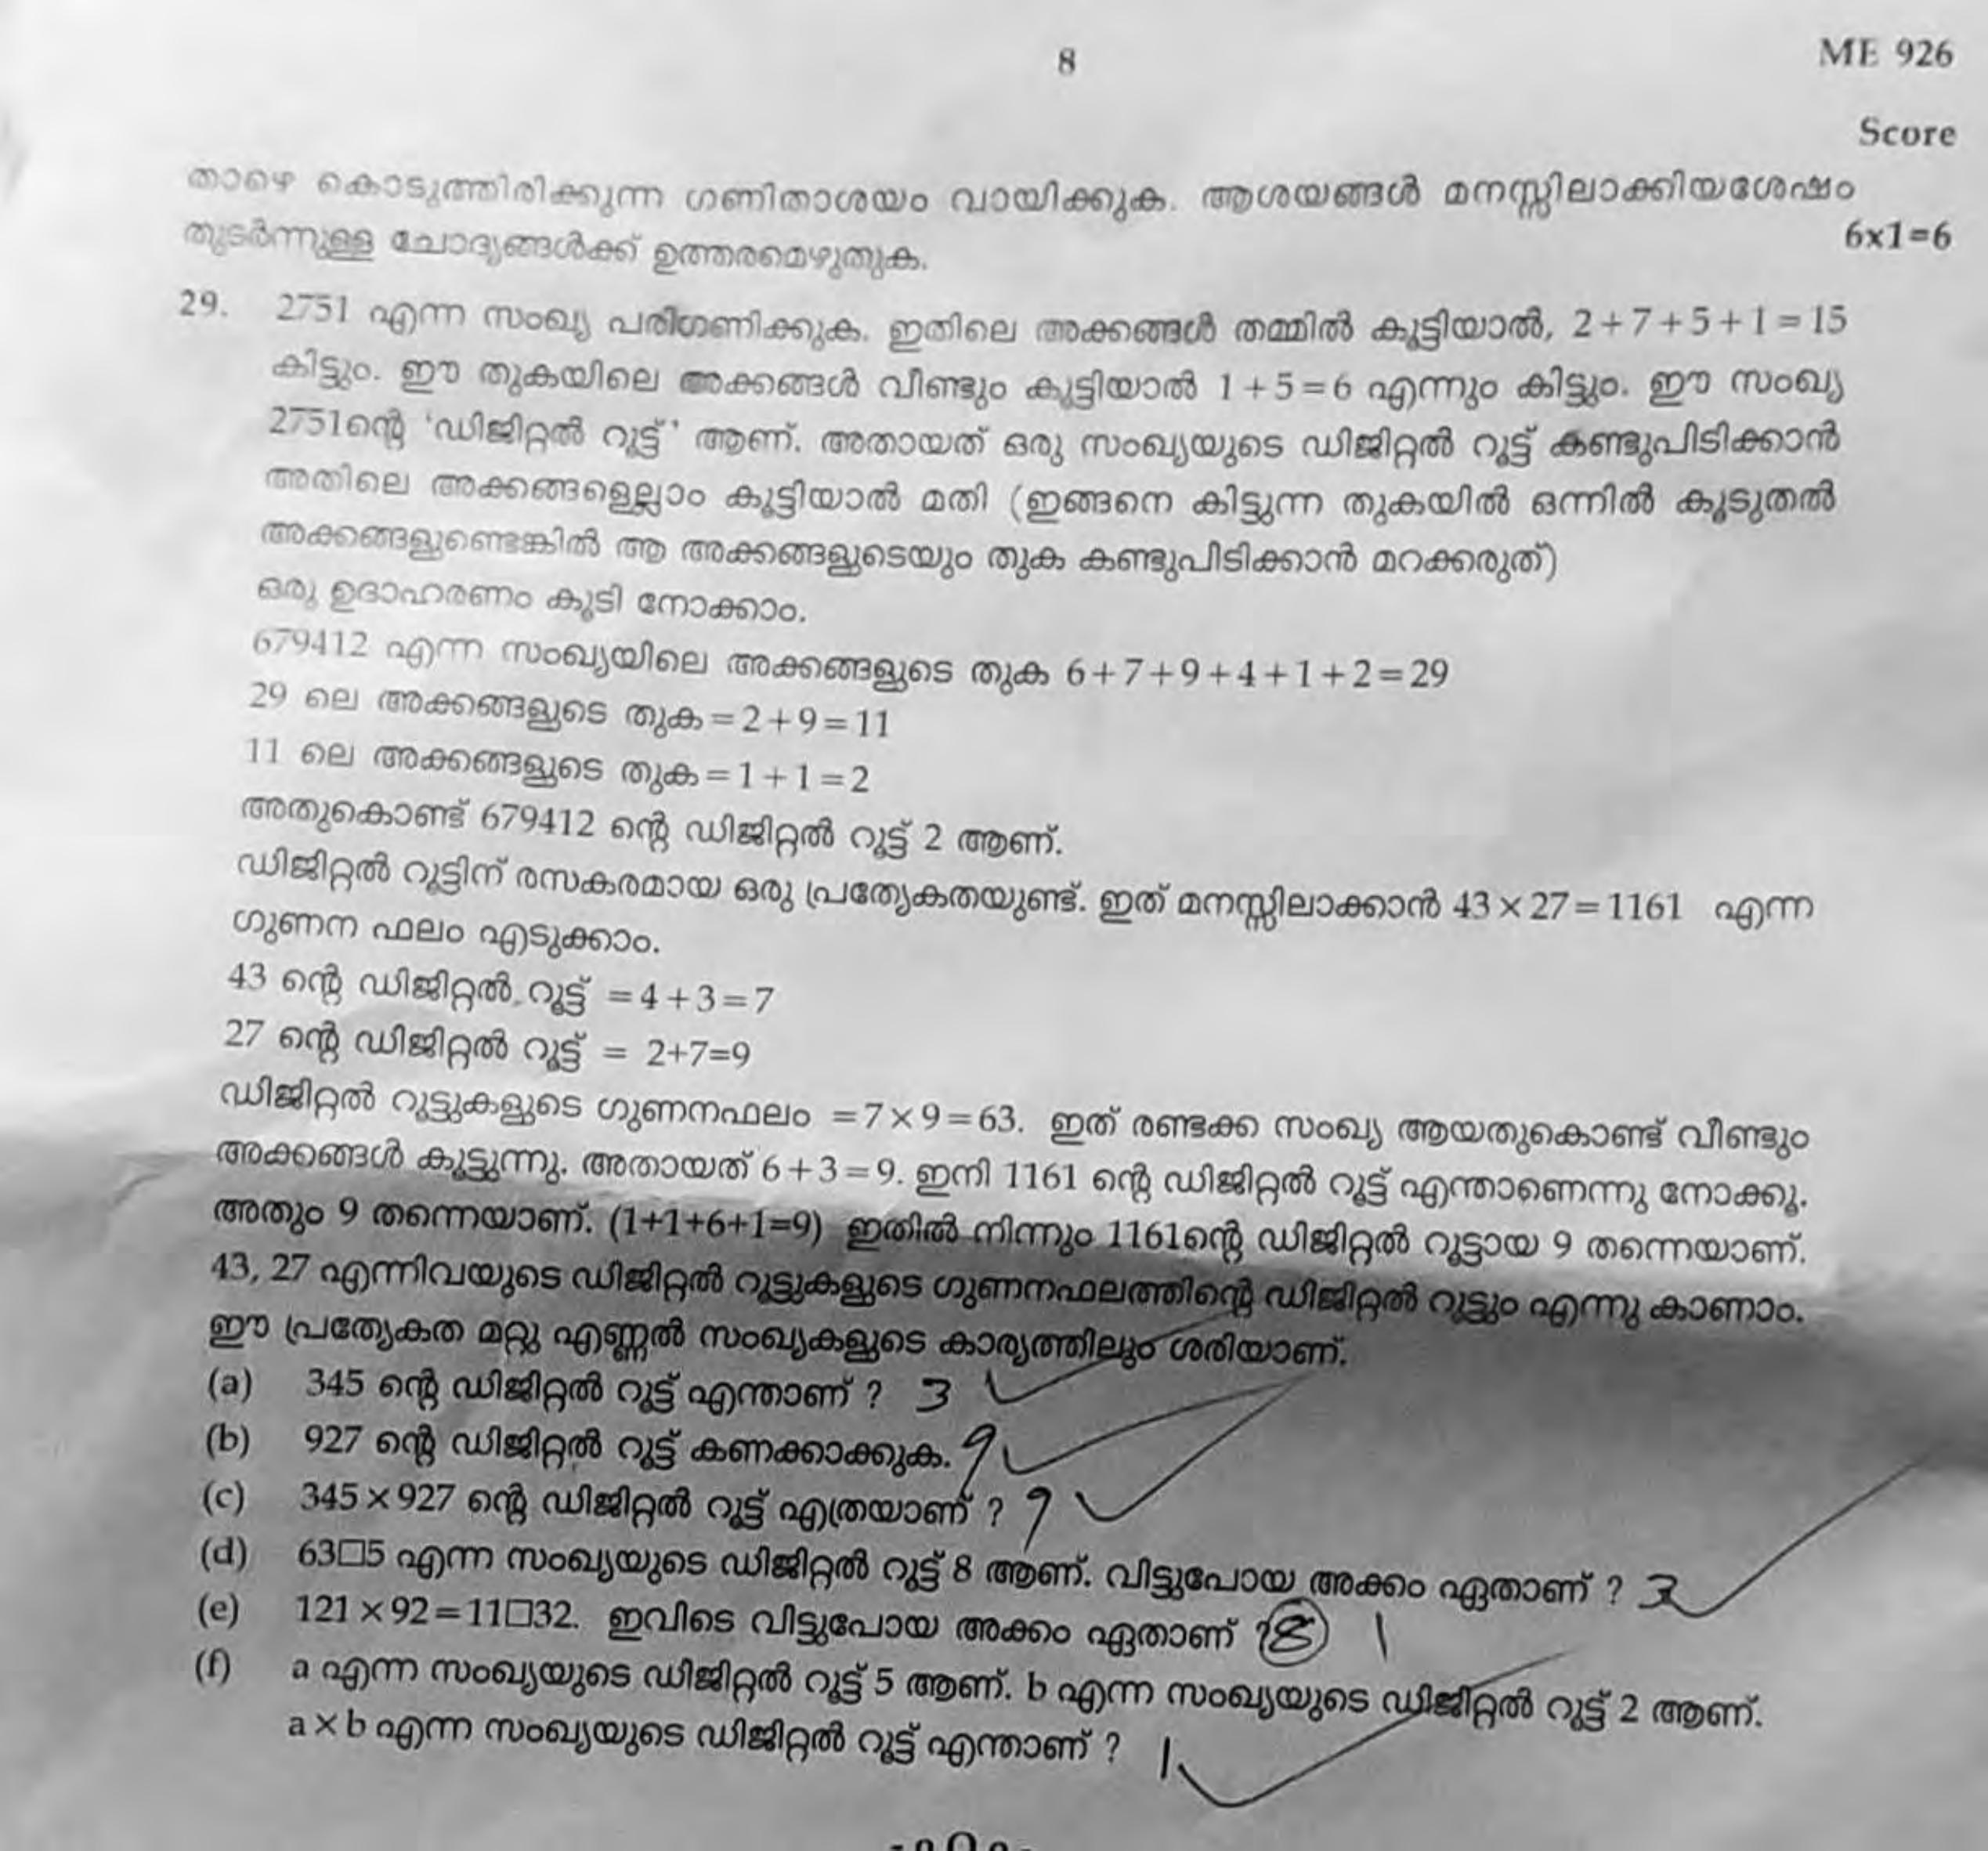 8
ME 926
Score
താഴെ കൊടുത്തിരിക്കുന്ന ഗണിതാശയം വായിക്കുക. ആശയങ്ങൾ മനസ്സിലാക്കിയശേഷം
തുടർന്നുള്ള ചോദ്യങ്ങൾക്ക് ഉത്തരമെഴുതുക. 6x1=6
29. 2751 എന്ന സംഖ്യ പരിഗണിക്കുക. ഇതിലെ അക്കങ്ങൾ തമ്മിൽ കൂട്ടിയാൽ, 2+7+5+1=15
കിട്ടും. ഈ തുകയിലെ അക്കങ്ങൾ വീണ്ടും കൂട്ടിയാൽ 1+5=6 എന്നും കിട്ടും. ഈ സംഖ്യ
2751ന്റെ 'ഡിജിറ്റൽ റൂട്ട്' ആണ്. അതായത് ഒരു സംഖ്യയുടെ ഡിജിറ്റൽ റൂട്ട് കണ്ടുപിടിക്കാൻ
അതിലെ അക്കങ്ങളെല്ലാം കൂട്ടിയാൽ മതി (ഇങ്ങനെ കിട്ടുന്ന തുകയിൽ ഒന്നിൽ കൂടുതൽ
അക്കങ്ങളുണ്ടെങ്കിൽ ആ അക്കങ്ങളുടെയും തുക കണ്ടുപിടിക്കാൻ മറക്കരുത്)
ഒരു ഉദാഹരണം കൂടി നോക്കാം.
679412 എന്ന സംഖ്യയിലെ അക്കങ്ങളുടെ തുക 6+7+9+4+1+2=29
29 ലെ അക്കങ്ങളുടെ തുക=2+9=11
11 ലെ അക്കങ്ങളുടെ തുക=1+1=2
അതുകൊണ്ട് 679412 ന്റെ ഡിജിറ്റൽ റൂട്ട് 2 ആണ്.
ഡിജിറ്റൽ റൂട്ടിന് രസകരമായ ഒരു പ്രത്യേകതയുണ്ട്. ഇത് മനസ്സിലാക്കാൻ 43×27=1161 എന്ന
ഗുണന ഫലം എടുക്കാം.
43 ന്റെ ഡിജിറ്റൽ റൂട്ട് =4+3=7
27 ന്റെ ഡിജിറ്റൽ റൂട്ട് = 2+7=9
ഡിജിറ്റൽ റൂട്ടുകളുടെ ഗുണനഫലം =7×9=63. ഇത് രണ്ടക്ക സംഖ്യ ആയതുകൊണ്ട് വീണ്ടും
അക്കങ്ങൾ കൂട്ടുന്നു. അതായത് 6+3=9. ഇനി 1161 ന്റെ ഡിജിറ്റൽ റൂട്ട് എന്താണെന്നു നോക്കൂ.
അതും 9 തന്നെയാണ്. (1+1+6+1=9) ഇതിൽ നിന്നും 1161ന്റെ ഡിജിറ്റൽ റൂട്ടായ 9 തന്നെയാണ്.
43, 27 എന്നിവയുടെ ഡിജിറ്റൽ റൂട്ടുകളുടെ ഗുണനഫലത്തിന്റെ ഡിജിറ്റൽ റൂട്ടും എന്നു കാണാം.
ഈ പ്രത്യേകത മറ്റു എണ്ണൽ സംഖ്യകളുടെ കാര്യത്തിലും ശരിയാണ്.
(a) 345 ന്റെ ഡിജിറ്റൽ റൂട്ട് എന്താണ് ? 3
(b) 927 ന്റെ ഡിജിറ്റൽ റൂട്ട് കണക്കാക്കുക. 9
(c) 345×927 ന്റെ ഡിജിറ്റൽ റൂട്ട് എത്രയാണ് ? 9
(d) 63□5 എന്ന സംഖ്യയുടെ ഡിജിറ്റൽ റൂട്ട് 8 ആണ്. വിട്ടുപോയ അക്കം ഏതാണ് ? 3
(e) 121×92=11□32. ഇവിടെ വിട്ടുപോയ അക്കം ഏതാണ് ? 8 1
(f) a എന്ന സംഖ്യയുടെ ഡിജിറ്റൽ റൂട്ട് 5 ആണ്. b എന്ന സംഖ്യയുടെ ഡിജിറ്റൽ റൂട്ട് 2 ആണ്.
a×b എന്ന സംഖ്യയുടെ ഡിജിറ്റൽ റൂട്ട് എന്താണ് ? 1